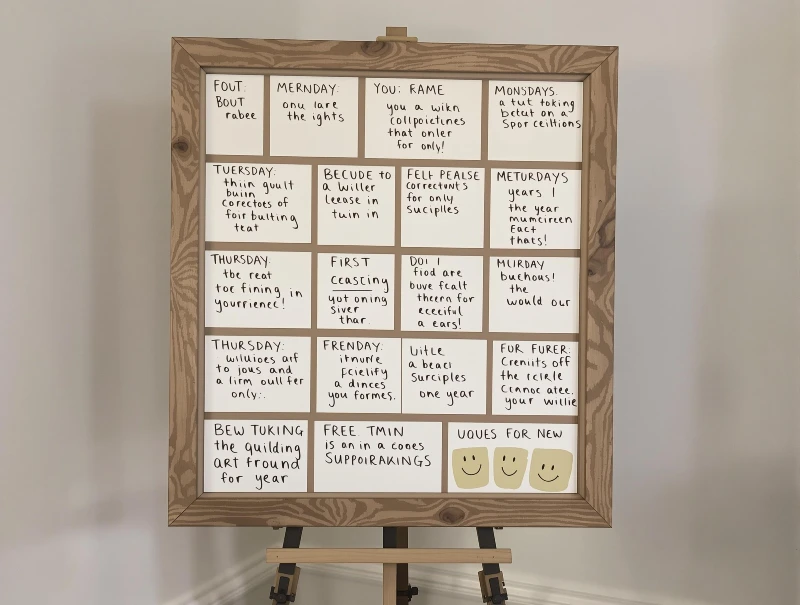 FOUT:
BOUT
rabee
MERNDAY:
onu lare
the ights
YOU: RAME
you a wikn
collpoictines
that onler
for only!
MONSDAYS.
a tut toking
betut on a
Spor ceiltions
TUERSDAY:
thiin guult
buiin
corectoes of
foir bulting
teat
BECUDE to
a willer
leease in
tuin in
FELF PEALSE
correctant's
for only
suciplles
METURDAYS
years I
the year
mumcireen
Eact
thats!
THURSDAY:
tbe reat
toe fining in
yourrience!
FIRST
ceasting
yot oning
siver
thar.
DOI I
fiod are
buve fcalt
theern for
ececiful
a ears!
MURDAY
buchous!
the
would our
THURSDAY:
to jous and
a lirm oull fer
only:.
FRENDAY:
a dinces
you formes.
a beaci
Surciples
one year
FOR FURER:
Creniits off
the rcicle
your willie
BEW TUKING
the quilding
ART fround
for year
FREE TMIN
is an in a cones
SUPPOIRAKINGS
UQUES FOR NEW